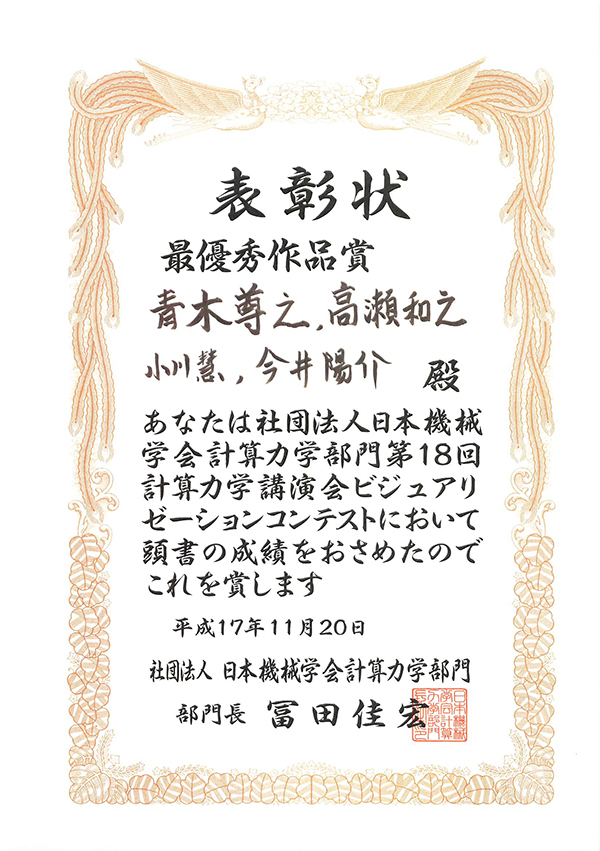 表彰状
最優秀作品賞
青木尊之,高瀬和之
小川慧,今井陽介 殿
あなたは社団法人日本機械
学会計算力学部門第18回
計算力学講演会ビジュアリ
ゼーションコンテストにおいて
頭書の成績をおさめたので
これを賞します
平成17年11月20日
社団法人 日本機械学会計算力学部門
部門長 冨田佳宏